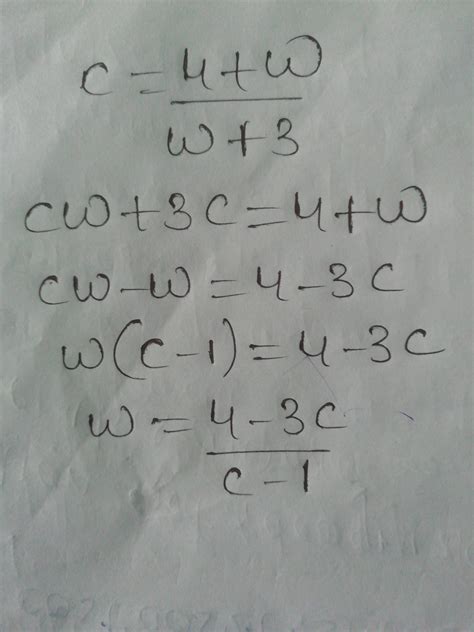 c = 4+w
w+3
cw+3c=4+w
cw-w=4-3c
w(c-1)=4-3c
w=4-3c
c-1